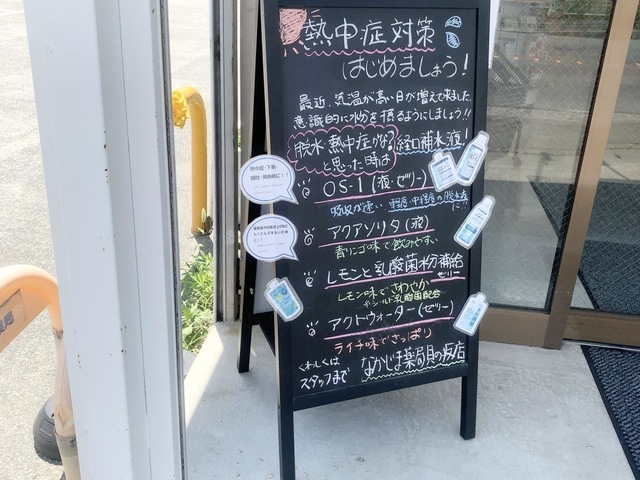 熱中症対策
はじめましょう!
最近、気温が高い日が増えて来ました
意識的に水分を摂るようにしましょう!!
脱水・熱中症かな?
と思った時は
経口補水液!
OS-1(液・ゼリー)
吸収が速い 軽度・中程度の脱水に!!
アクアソリタ(液)
青リンゴ味で飲みやすい
レモンと乳酸菌水分補給
ゼリー
レモン味でさわやか
シールド乳酸菌配合
アクトウォーター(ゼリー)
ライチ味でさっぱり
くわしくは
スタッフまで
なかじま薬局 貝の坂店
熱中症・下痢・
嘔吐・発熱時に!!
たくさん汗をかいた後
に!!